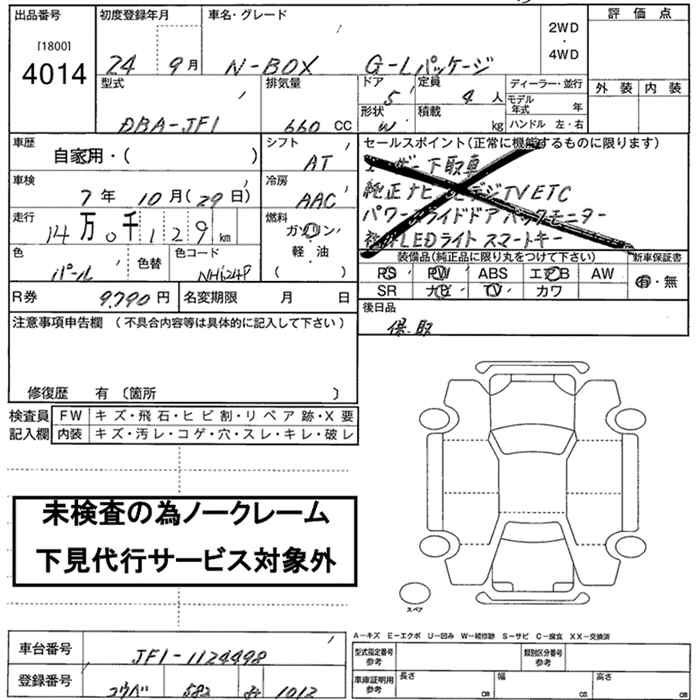 出品番号 初度登録年月 車名・グレード 2WD・4WD 評価点
[1800]
4014
24 9月 N-BOX G-Lパッケージ
外装 内装
型式 排気量 ドア 定員 ディーラー・並行
DBA-JF1 660 CC 5 4人
モデル年式 年
形状 積載 ハンドル 左・右
W kg
車歴 シフト セールスポイント(正常に機能するものに限ります)
自家用・( ) AT
ユーザー下取車
車検 冷房
7年 10月(29日) AAC
純正ナビ デジTV ETC
走行 燃料
14万0千129km ガソリン・軽油 ( )
パワースライドドア バックモニター
LEDライト スマートキー
色 色替 色コード
パール NH624P
装備品(純正品に限り丸をつけて下さい) 新車保証書
PS PW ABS エアB AW 有・無
SR ナビ TV カワ
R券 9,790円 名変期限 月 日
後日品
保.取
注意事項申告欄 (不具合内容等は具体的に記入して下さい)
修復歴 有 〔箇所 〕
検査員記入欄
FW キズ・飛石・ヒビ割・リペア跡・X要
内装 キズ・汚レ・コゲ・穴・スレ・キレ・破レ
未検査の為ノークレーム
下見代行サービス対象外
スペア
A-キズ E-エクボ U-凹み W-補修跡 S-サビ C-腐食 XX-交換済
車台番号 JF1-1124498
型式指定番号 参考 類別区分番号 参考
登録番号 コウベ 582 1012
車庫証明用 参考 長さ cm 幅 cm 高さ cm